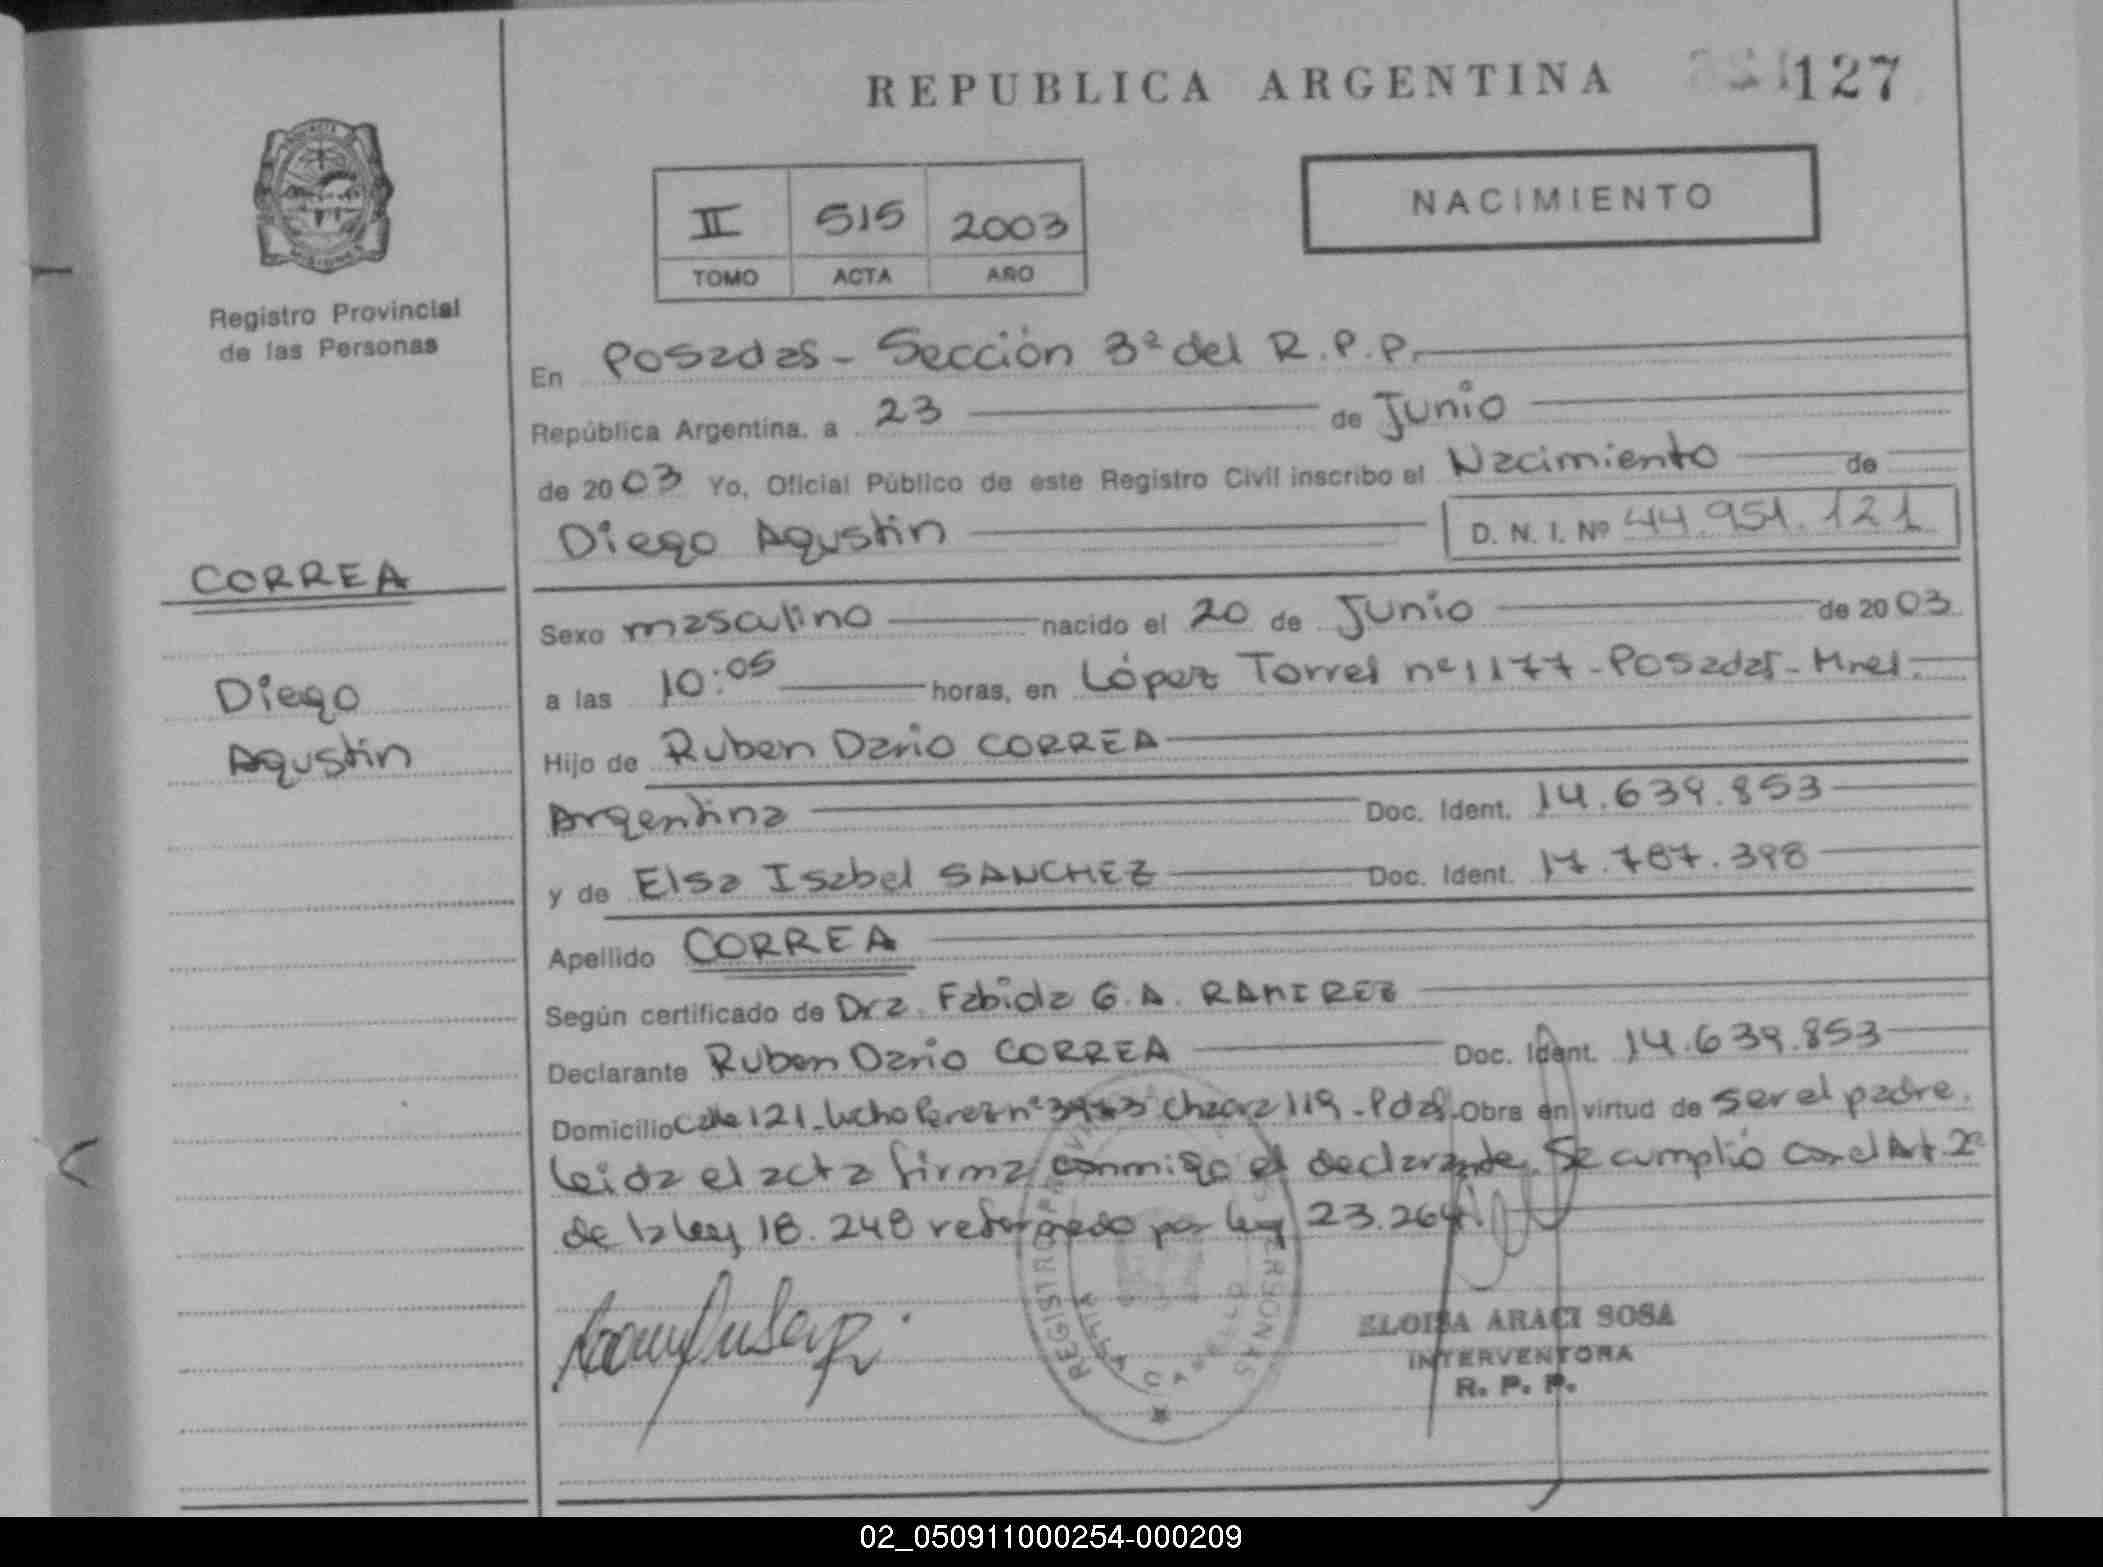 REPUBLICA ARGENTINA 127
NACIMIENTO
II 515 2003
TOMO ACTA AÑO
Registro Provincial
de las Personas
En Posadas - Sección 3ª del R.P.P.
República Argentina, a 23 de Junio
de 2003 Yo, Oficial Público de este Registro Civil inscribo el Nacimiento de
Diego Agustin D. N. I. Nº 44.951.121
CORREA
Diego
Agustin
Sexo masculino nacido el 20 de Junio de 2003
a las 10:05 horas, en López Torres nº 1177 - Posadas - Mnes.
Hijo de Ruben Dario CORREA
Argentina Doc. Ident. 14.639.853
y de Elsa Isabel SANCHEZ Doc. Ident. 17.787.398
Apellido CORREA
Según certificado de Dra. Fabiola G. A. RAMIREZ
Declarante Ruben Dario CORREA Doc. Ident. 14.639.853
Domicilio Calle 121 - Lucho Perez nº Chacra 119 - Pdas. Obra en virtud de ser el padre.
Leida el acta firma conmigo el declarante. Se cumplió con el Art. 2º
de la ley 18.248 reformado por ley 23.264.
REGISTRO PERSONAS
ELOISA ARACI SOSA
INTERVENTORA
R. P. P.
02_050911000254-000209